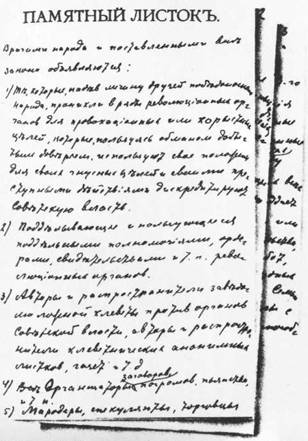 ПАМЯТНЫЙ ЛИСТОКЪ.
Врагами народа и поставленными вне
закона объявляются:
1) Те, которые, надев личину друзей
народа, проникли в ряды революционных орга-
нов для провокационных и корыстных
целей, которые, пользуясь обманом
доверием, используют свое положение
для своих гнусных целей и своими пре-
ступными действиями дискредитируют
Советскую власть.
2) Подделывающие и пользующиеся
поддельными полномочиями, орде-
рами, свидетельствами и т. п. рево-
люционных органов.
3) Авторы и распространители заведо-
мо ложной клеветы против органов
Советской власти, авторы и распростра-
нители клеветнических анонимных
листков, газет и т д
4) Все Организаторы заговоров, погромов, пьянства
и т. п.
5) Мародеры, спекулянты, торговцы